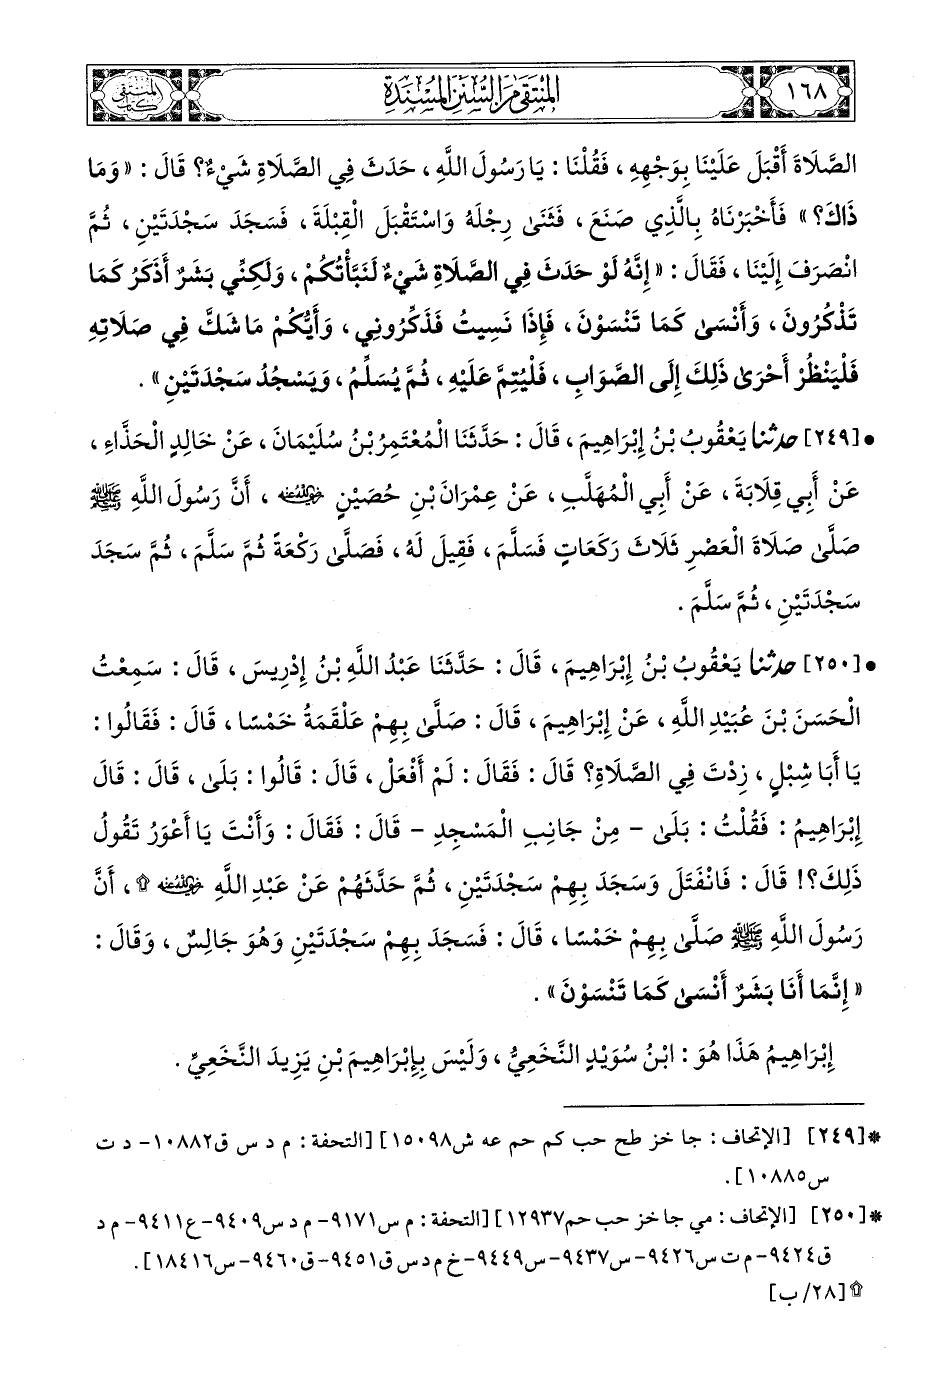 ١٦٨
المنتقى من السنن المسندة
كتاب المنتقى
الصَّلَاةَ أَقْبَلَ عَلَيْنَا بِوَجْهِهِ ، فَقُلْنَا : يَا رَسُولَ اللَّهِ ، حَدَثَ فِي الصَّلَاةِ شَيْءٌ؟ قَالَ : «وَمَا
ذَاكَ؟» فَأَخْبَرْنَاهُ بِالَّذِي صَنَعَ ، فَثَنَى رِجْلَهُ وَاسْتَقْبَلَ الْقِبْلَةَ ، فَسَجَدَ سَجْدَتَيْنِ ، ثُمَّ
انْصَرَفَ إِلَيْنَا ، فَقَالَ : «إِنَّهُ لَوْ حَدَثَ فِي الصَّلَاةِ شَيْءٌ لَنَبَّأْتُكُمْ ، وَلَكِنِّي بَشَرٌ أَذْكُرُ كَمَا
تَذْكُرُونَ ، وَأَنْسَى كَمَا تَنْسَوْنَ ، فَإِذَا نَسِيتُ فَذَكِّرُونِي ، وَأَيُّكُمْ مَا شَكَّ فِي صَلَاتِهِ
فَلْيَنْظُرْ أَحْرَى ذَلِكَ إِلَى الصَّوَابِ ، فَلْيُتِمَّ عَلَيْهِ ، ثُمَّ يُسَلِّمُ ، وَيَسْجُدُ سَجْدَتَيْنِ» .
• [٢٤٩] حدثنا يَعْقُوبُ بْنُ إِبْرَاهِيمَ ، قَالَ : حَدَّثَنَا الْمُعْتَمِرُ بْنُ سُلَيْمَانَ ، عَنْ خَالِدٍ الْحَذَّاءِ ،
عَنْ أَبِي قِلَابَةَ ، عَنْ أَبِي الْمُهَلَّبِ ، عَنْ عِمْرَانَ بْنِ حُصَيْنٍ رضي الله عنه ، أَنَّ رَسُولَ اللَّهِ ﷺ
صَلَّى صَلَاةَ الْعَصْرِ ثَلَاثَ رَكَعَاتٍ فَسَلَّمَ ، فَقِيلَ لَهُ ، فَصَلَّى رَكْعَةً ثُمَّ سَلَّمَ ، ثُمَّ سَجَدَ
سَجْدَتَيْنِ ، ثُمَّ سَلَّمَ .
• [٢٥٠] حدثنا يَعْقُوبُ بْنُ إِبْرَاهِيمَ ، قَالَ : حَدَّثَنَا عَبْدُ اللَّهِ بْنُ إِدْرِيسَ ، قَالَ : سَمِعْتُ
الْحَسَنَ بْنَ عُبَيْدِ اللَّهِ ، عَنْ إِبْرَاهِيمَ ، قَالَ : صَلَّى بِهِمْ عَلْقَمَةُ خَمْسًا ، قَالَ : فَقَالُوا :
يَا أَبَا شِبْلٍ ، زِدْتَ فِي الصَّلَاةِ؟ قَالَ : فَقَالَ : لَمْ أَفْعَلْ ، قَالَ : قَالُوا : بَلَى ، قَالَ : قَالَ
إِبْرَاهِيمُ : فَقُلْتُ : بَلَى – مِنْ جَانِبِ الْمَسْجِدِ – قَالَ : فَقَالَ : وَأَنْتَ يَا أَعْوَرُ تَقُولُ
ذَلِكَ؟! قَالَ : فَانْفَتَلَ وَسَجَدَ بِهِمْ سَجْدَتَيْنِ ، ثُمَّ حَدَّثَهُمْ عَنْ عَبْدِ اللَّهِ رضي الله عنه ۩ ، أَنَّ
رَسُولَ اللَّهِ ﷺ صَلَّى بِهِمْ خَمْسًا ، قَالَ : فَسَجَدَ بِهِمْ سَجْدَتَيْنِ وَهُوَ جَالِسٌ ، وَقَالَ :
«إِنَّمَا أَنَا بَشَرٌ أَنْسَى كَمَا تَنْسَوْنَ» .
إِبْرَاهِيمُ هَذَا هُوَ : ابْنُ سُوَيْدٍ النَّخَعِيُّ ، وَلَيْسَ بِإِبْرَاهِيمَ بْنِ يَزِيدَ النَّخَعِيِّ .
*[٢٤٩] [الإتحاف : جا خز طح حب كم حم عه ش١٥٠٩٨] [التحفة : م د س ق١٠٨٨٢– د ت
س١٠٨٨٥] .
*[٢٥٠] [الإتحاف : مي جا خز حب حم١٢٩٣٧] [التحفة : م س٩١٧١– م د س٩٤٠٩– ع٩٤١١– م د
ق٩٤٢٤– م ت س٩٤٢٦– س٩٤٣٧– س٩٤٤٩– خ م د س ق٩٤٥١– ق٩٤٦٠– س١٨٤١٦] .
۩[٢٨/ ب]